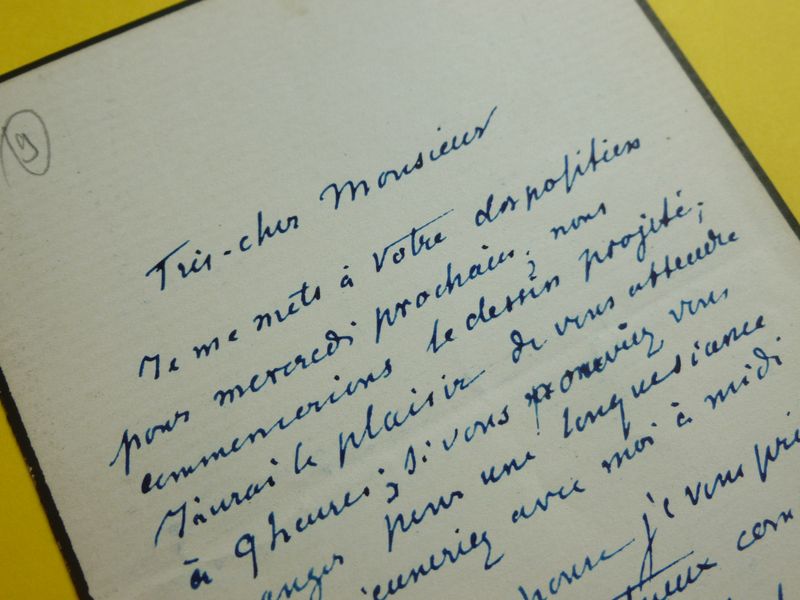 9
Très-cher Monsieur
Je me mets à votre disposition
pour mercredi prochain, nous
commencerions le dessin projeté;
J'aurai le plaisir de vous attendre
à 9 heures; si vous pouviez vous
pour une longue séance
avec moi à midi
je vous pri